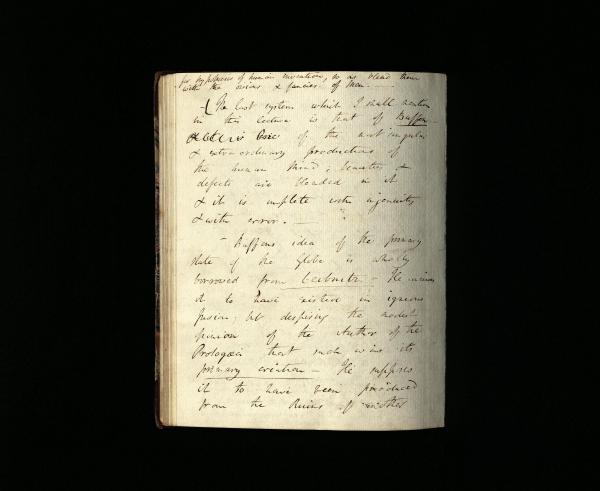 for hypotheses of human invention, so as blend them
with the visions & fancies of Man. —
— The last system which I shall mention
in this Lecture is that of Buffon —
is one of the most singular
& extraordinary productions of
the human Mind, beauties &
defects are blended in it
& it is replete with ingenuity
& with error. —
— Buffons idea of the primary
state of the Globe is wholly
borrowed from Leibnitz — He
it to have existed in igneous
fusion; but despising the modest
opinion of the Author of the
Protogæa that such was its
primary creation — He supposes
it to have been produced
from the Ruins of another